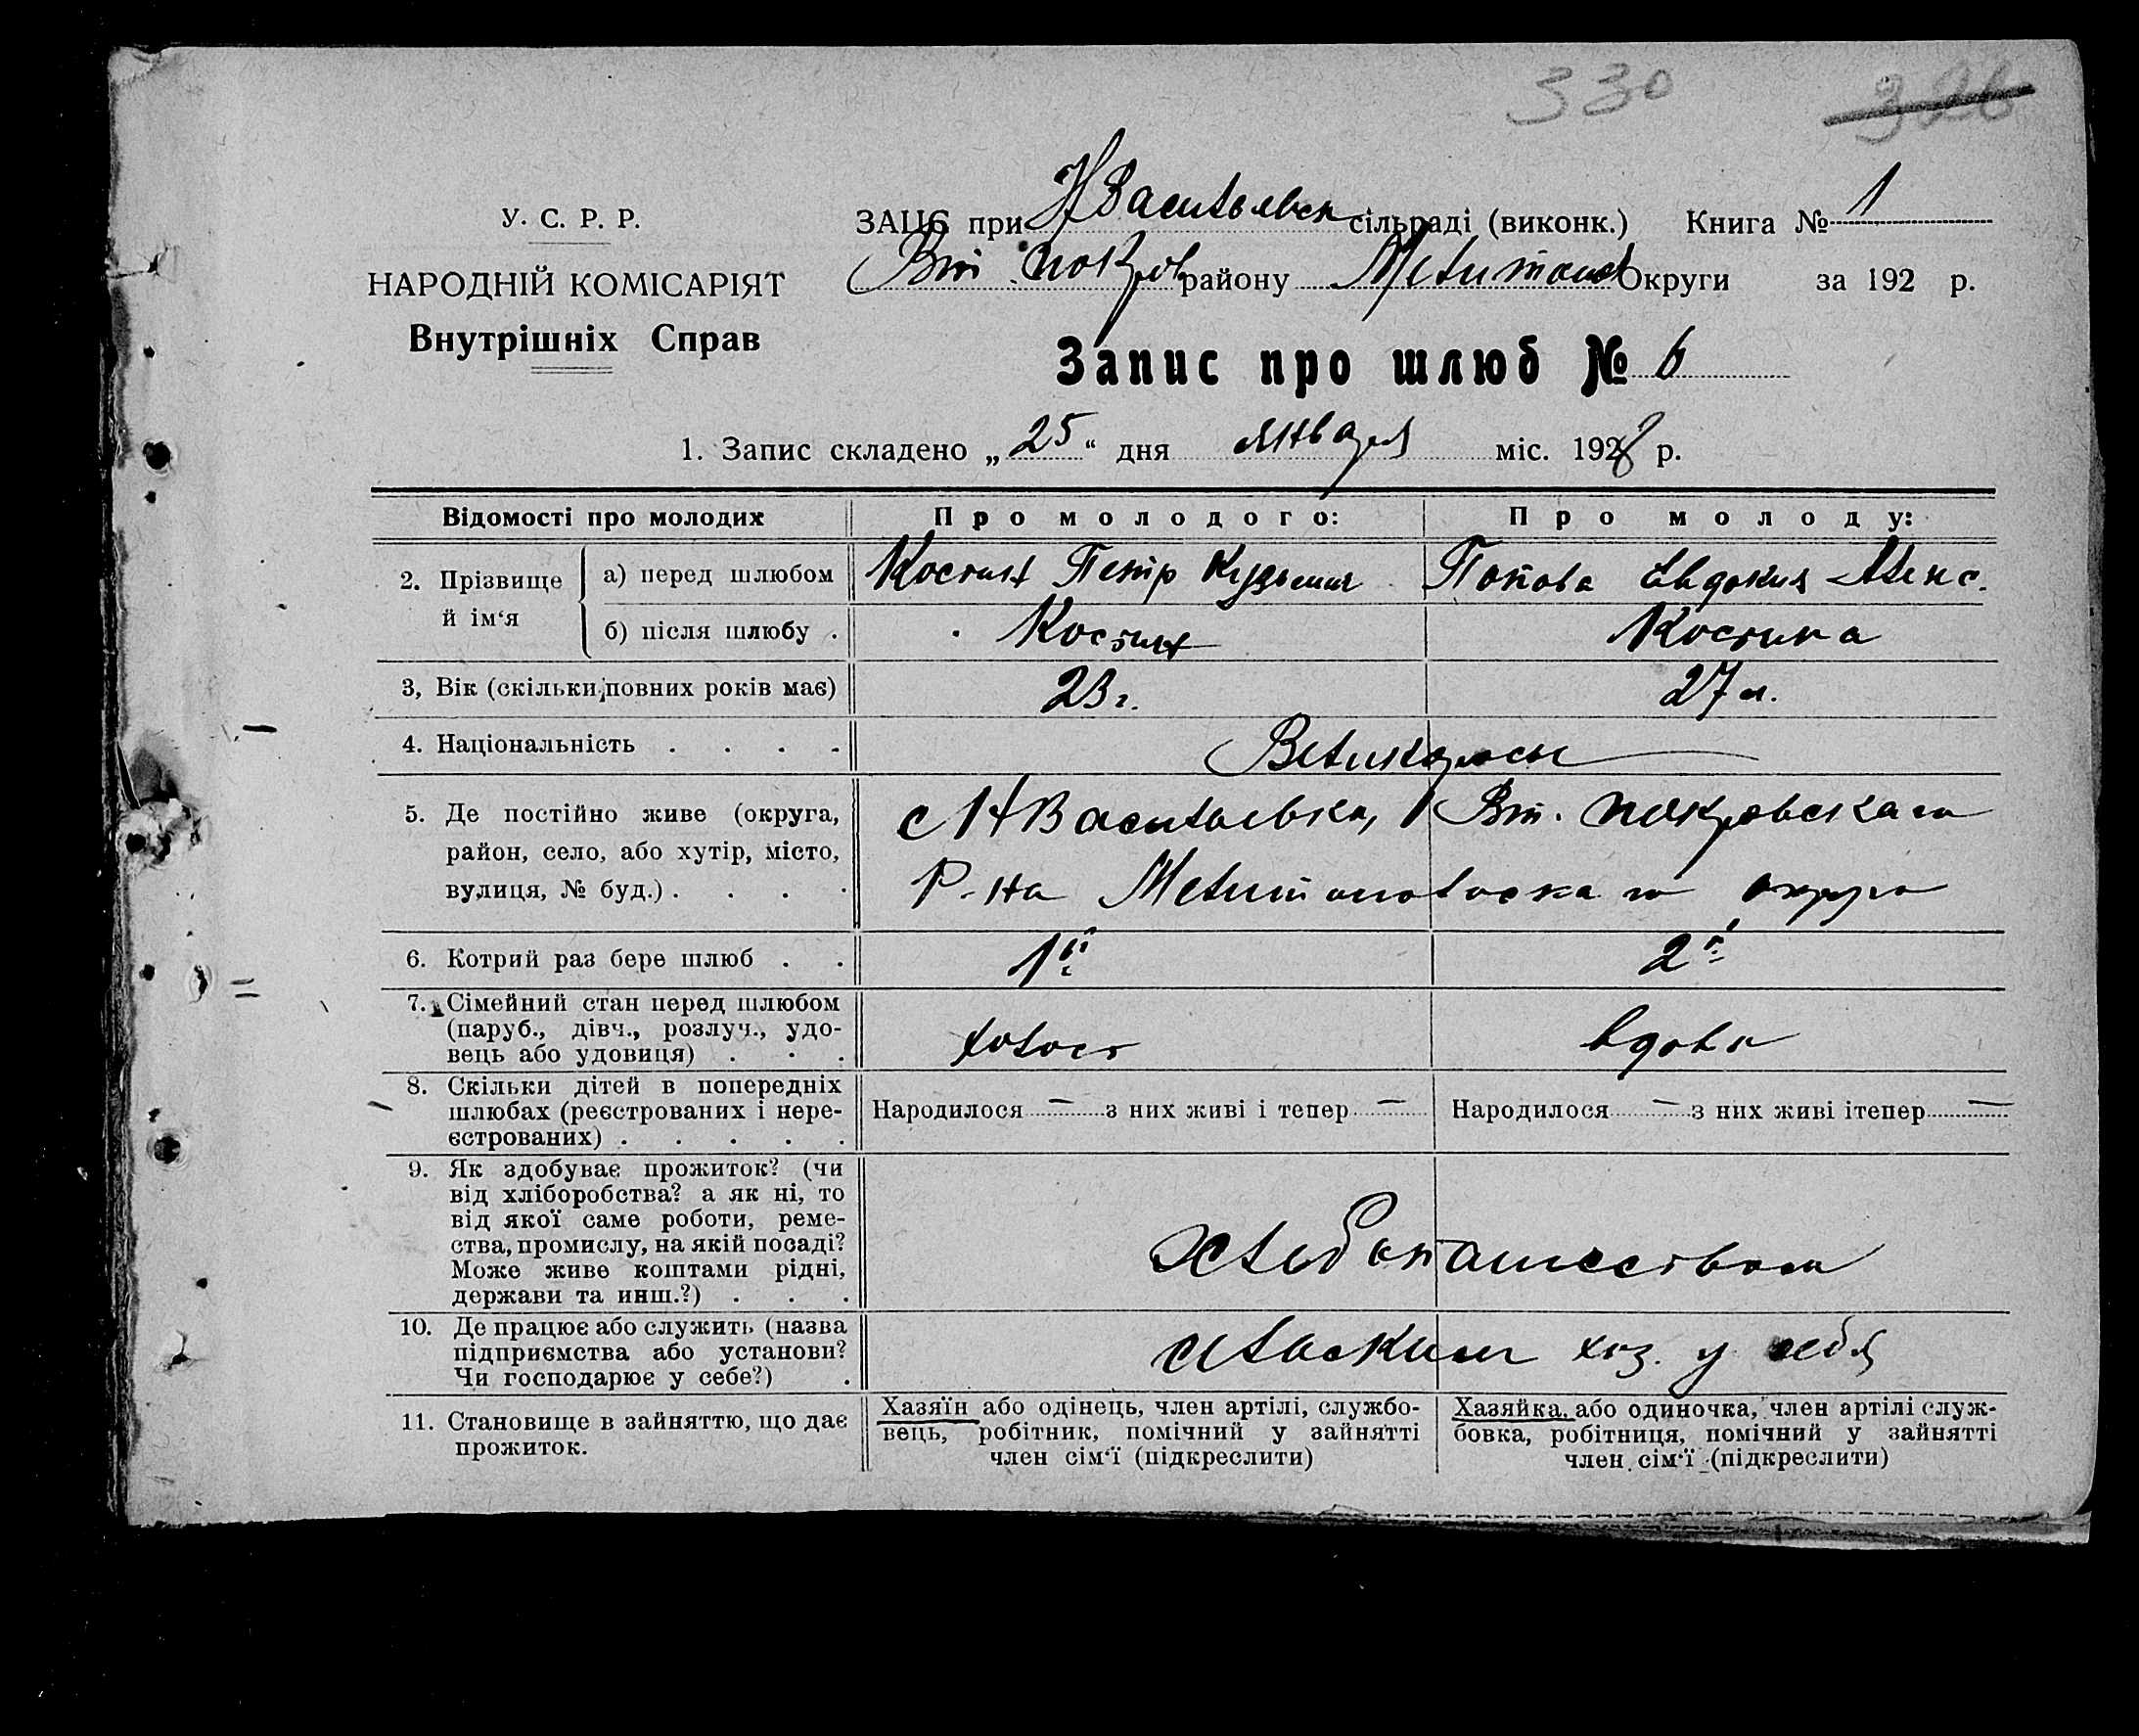 330 326
У. С. Р. Р.
НАРОДНІЙ КОМІСАРІЯТ
Внутрішніх Справ
ЗАЦС при Н Васильевск сільраді (виконк.) Книга № 1
Вт. Покров району Мелитопол Округи за 192 р.
Запис про шлюб № 6
1. Запис складено „25“ дня января міс. 1928 р.
Відомості про молодих Про молодого: Про молоду:
2. Прізвище й ім‘я
а) перед шлюбом Костин Петр Кузьмич Попова Евдокия Алекс.
б) після шлюбу . Костин Костина
3, Вік (скільки повних років має) 23 г. 27 л.
4. Національність . . . . Великоросы
5. Де постійно живе (округа, с Н Васильевка, Вт. Покровскаго
район, село, або хутір, місто,
вулиця, № буд.) . . . . Р-на Мелитопольскаго округа
6. Котрий раз бере шлюб . . 1й 2й
7. Сімейний стан перед шлюбом
(паруб., дівч., розлуч., удо-
вець або удовиця) . . . холост вдова
8. Скільки дітей в попередніх
шлюбах (реєстрованих і нере- Народилося — з них живі і тепер — Народилося — з них живі ітепер —
єстрованих) . . . . .
9. Як здобуває прожиток? (чи
від хліборобства? а як ні, то
від якої саме роботи, реме-
ства, промислу, на якій посаді? хлебопашеством
Може живе коштами рідні,
держави та инш.?) . . .
10. Де працює або служить (назва
підприємства або установи? сельским хоз. у себя
Чи господарює у себе?) .
11. Становище в зайняттю, що дає
прожиток.
Хазяїн або одінець, член артілі, службо-
вець, робітник, помічний у зайнятті
член сім‘ї (підкреслити)
Хазяйка, або одиночка, член артілі служ-
бовка, робітниця, помічний у зайнятті
член сім‘ї (підкреслити)